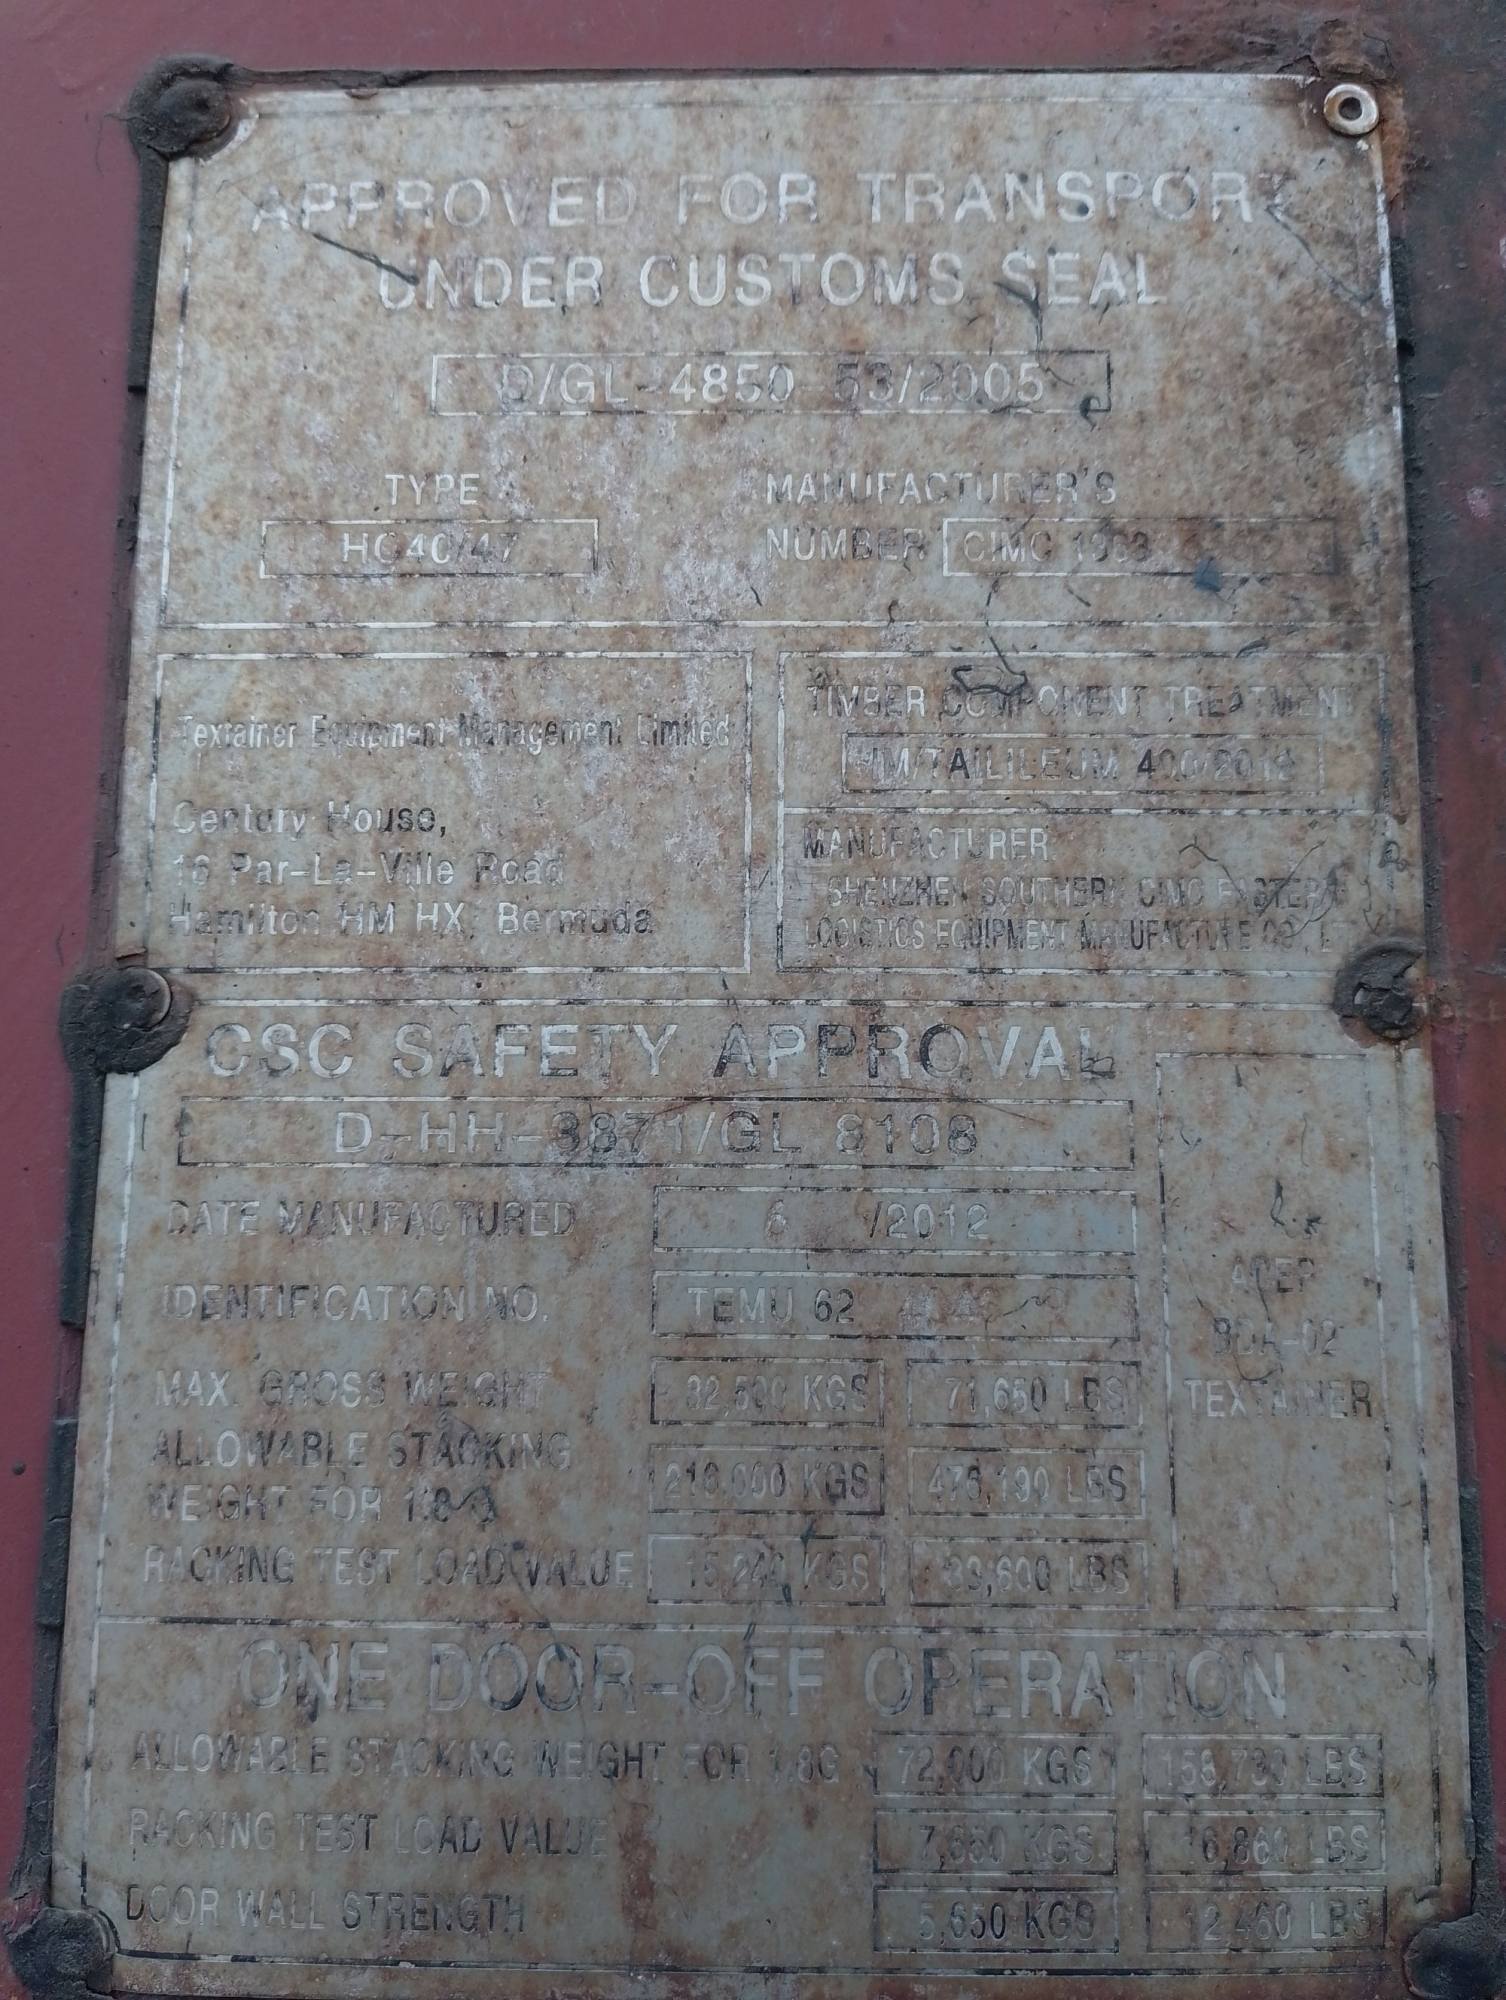 APPROVED FOR TRANSPORT
UNDER CUSTOMS SEAL
D/GL-4850 53/2005
TYPE
HC40/47
MANUFACTURER'S
NUMBER CIMC
Textainer Equipment Management Limited
Century House,
16 Par-La-Ville Road
Hamilton HM HX, Bermuda
TIMBER COMPONENT TREATMENT
400/2012
MANUFACTURER
SHENZHEN SOUTHERN CIMC EASTERN
LOGISTICS EQUIPMENT MANUFACTURE CO., L
CSC SAFETY APPROVAL
D-HH-3871/GL 8108
DATE MANUFACTURED 6 /2012
IDENTIFICATION NO. TEMU 62
MAX. GROSS WEIGHT 32,500 KGS 71,650 LBS
ALLOWABLE STACKING
WEIGHT FOR 1.8 G 216,000 KGS 476,190 LBS
RACKING TEST LOAD VALUE 15,240 KGS 33,600 LBS
ACEP
BDA-02
TEXTAINER
ONE DOOR-OFF OPERATION
ALLOWABLE STACKING WEIGHT FOR 1.8G 72,000 KGS 158,730 LBS
RACKING TEST LOAD VALUE 7,650 KGS 16,860 LBS
DOOR WALL STRENGTH 5,650 KGS 12,460 LBS